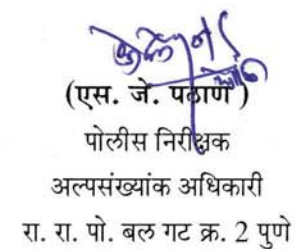 (एस. जे. पठाण )
पोलीस निरीक्षक
अल्पसंख्यांक अधिकारी
रा. रा. पो. बल गट क्र. 2 पुणे